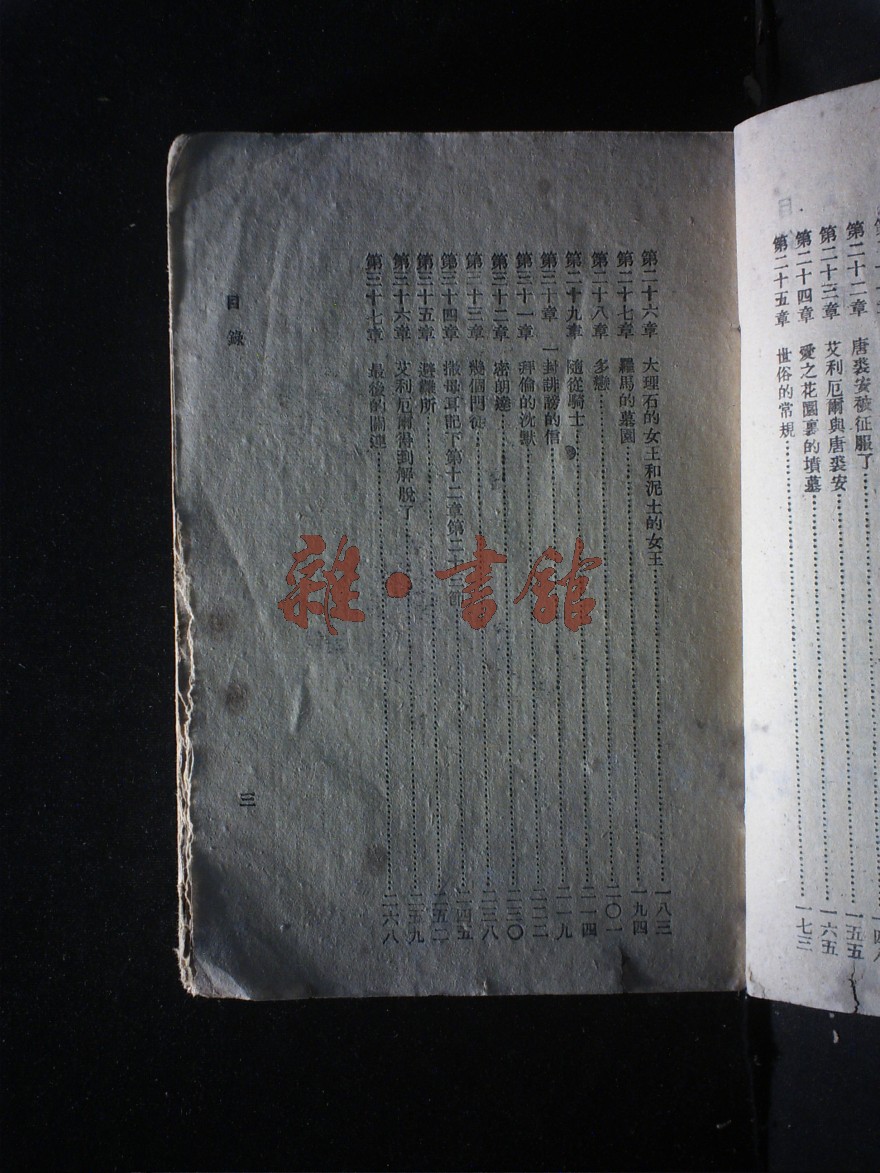 第二十二章 唐裘安被征服了 一五五
第二十三章 艾利厄爾與唐裘安 一六五
第二十四章 愛之花園裏的墳墓
第二十五章 世俗的常規 一七三
第二十六章 大理石的女王和泥土的女王 一八三
第二十七章 羅馬的墓園 一九四
第二十八章 多戀 二〇一
第二十九章 隨從騎士 二一四
第三十章 一封誹謗的信 二一九
第三十一章 拜倫的沈默 二二二
第三十二章 密朗達 二三〇
第三十三章 幾個門徒 二三八
第三十四章 撒母耳記下第十二章第二十三節 二四五
第三十五章 避難所 二五二
第三十六章 艾利厄爾得到解脫了 二五九
第三十七章 最後的關連 二六八
目錄
三
雜·書館